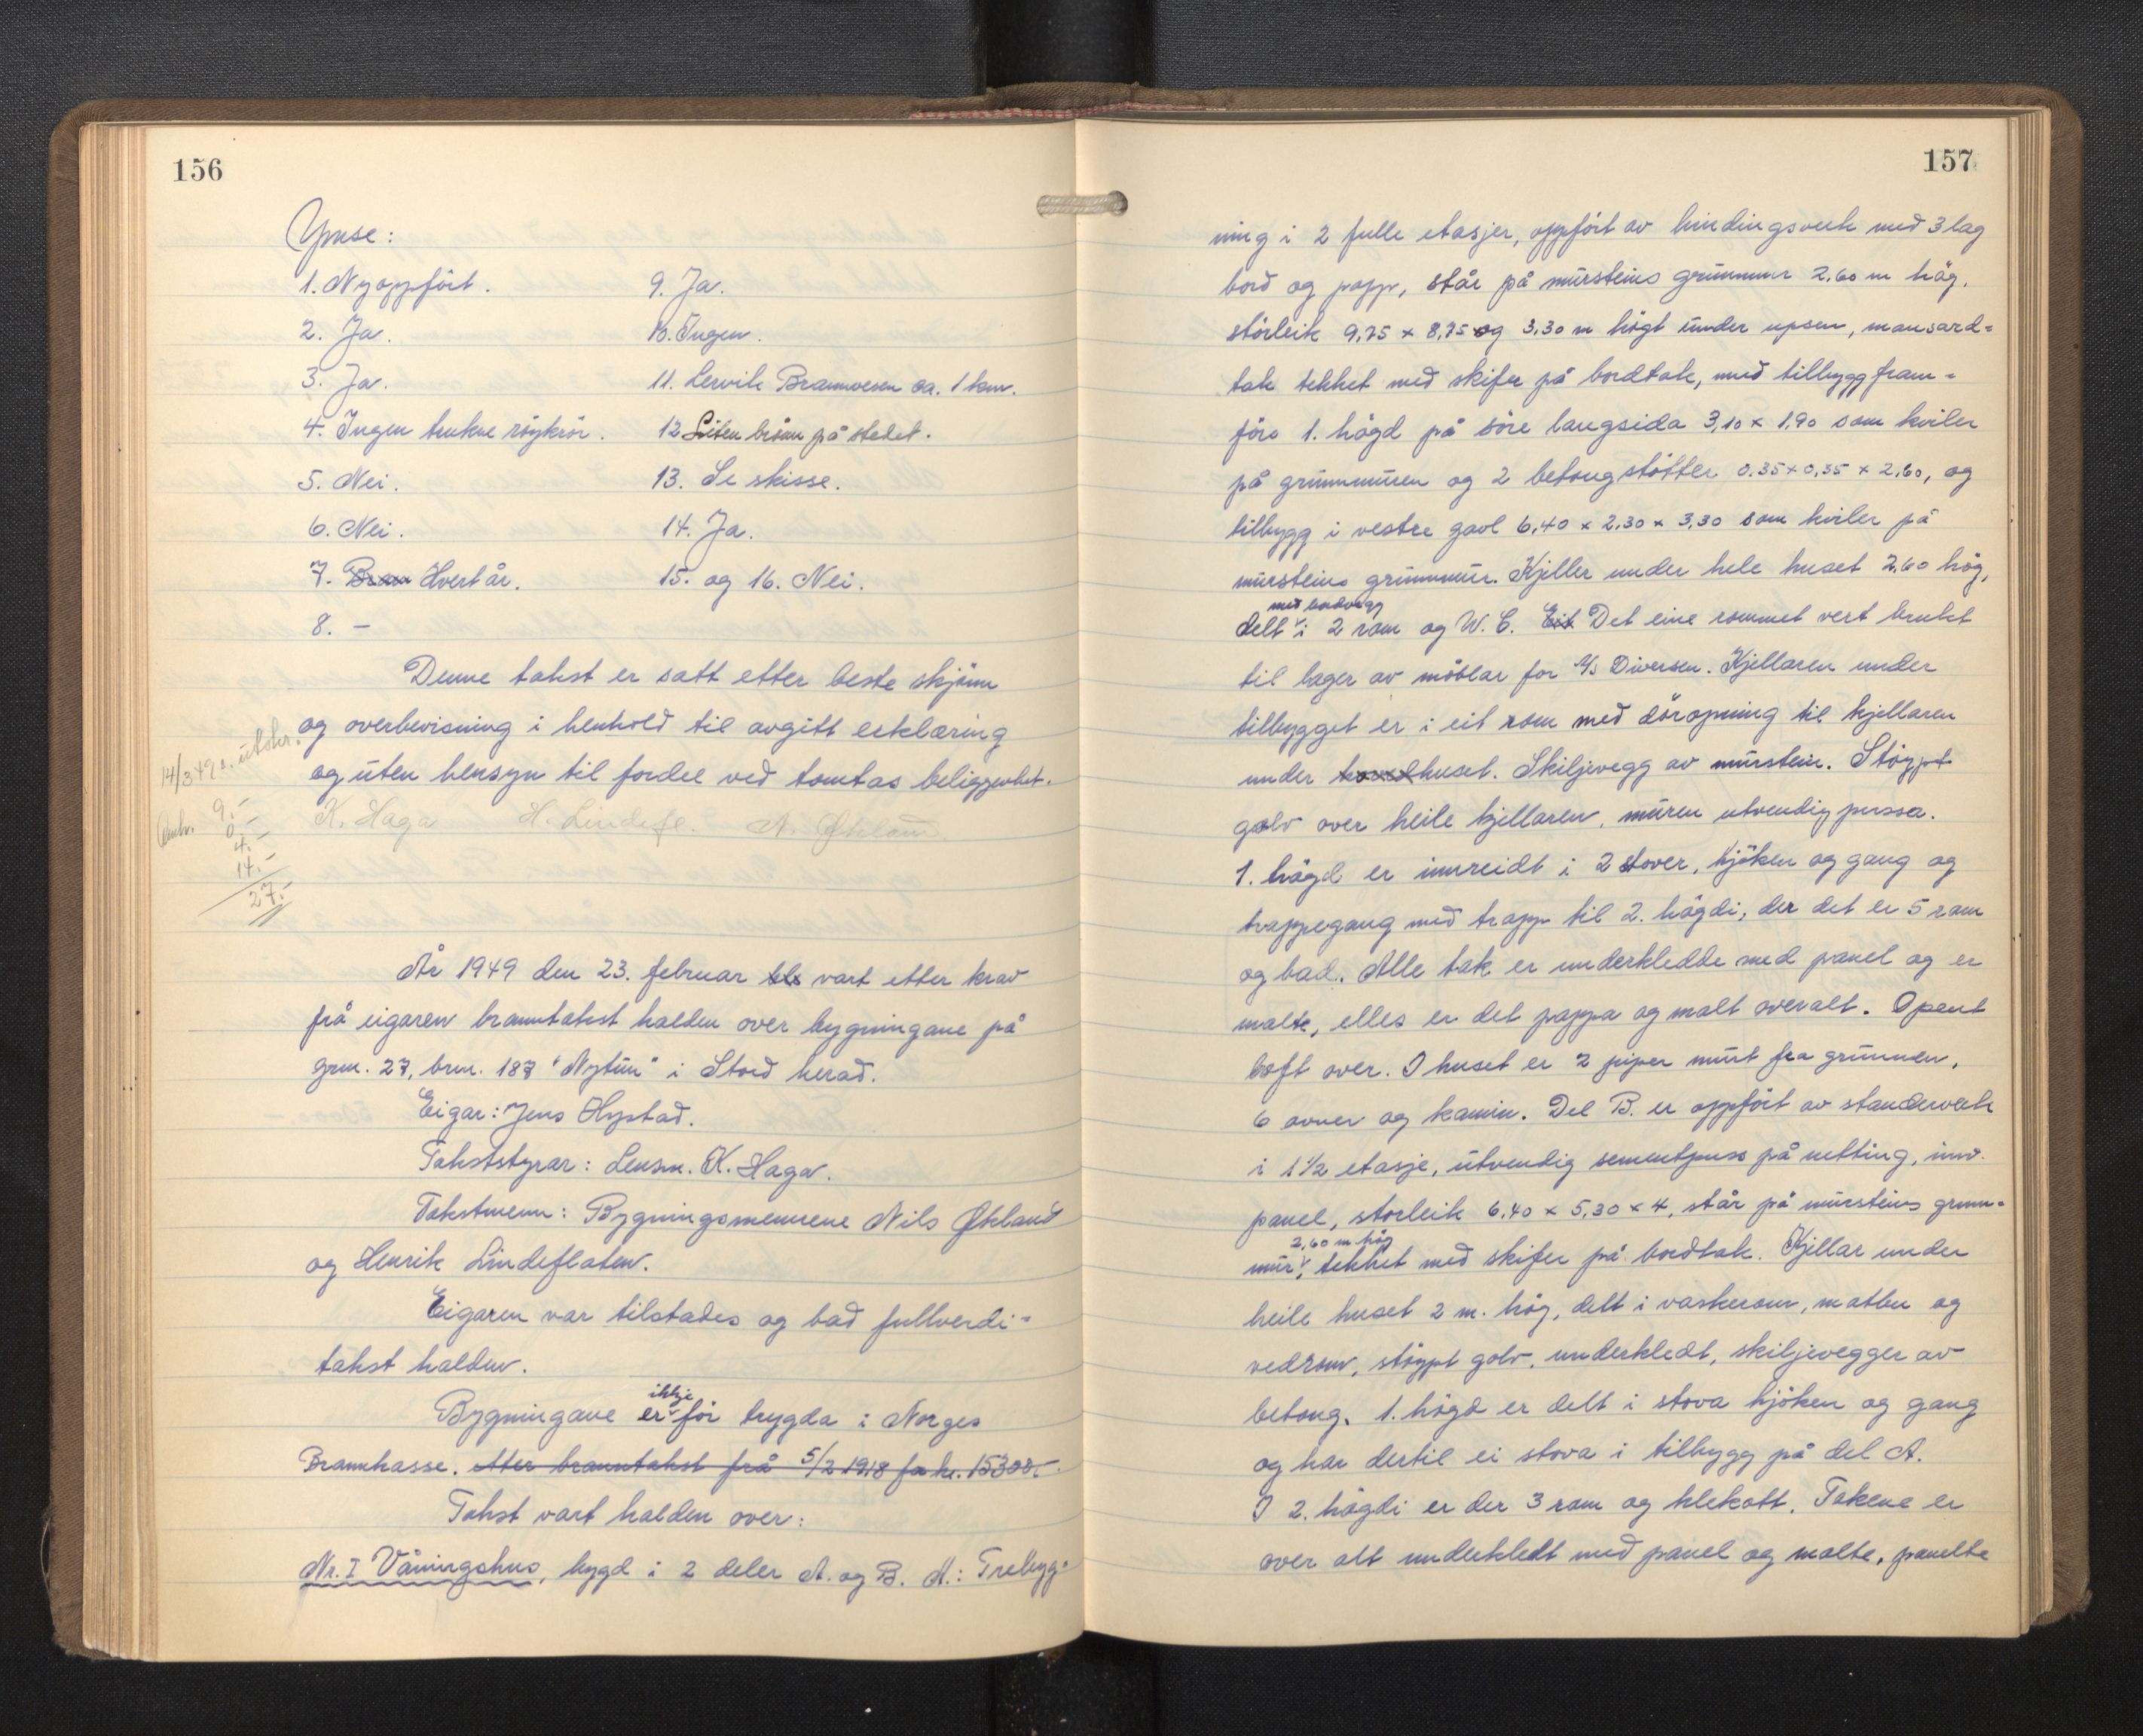 156
Ymse:
1. Nyoppfört.
2. Ja.
3. Ja.
4. Ingen trukne röykrör.
5. Nei.
6. Nei.
7. Hvert år.
8. –
9. Ja.
10. Ingen.
11. Lervik Brannvesen ca. 1 km.
12 Liten brönn på stedet.
13. Se skisse.
14. Ja.
15. og 16. Nei.
Denne takst er satt etter beste skjönn
og overbevisning i henhold til avgitt erklæring
og uten hensyn til fordel ved tomtas beliggenhet.
K. Haga H. Lindefl. N. Økland
14/3 49 utskr.
9.-
0.-
4.-
14.-
27.-
År 1949 den 23. februar vart etter krav
frå eigaren branntakst halden over bygningane på
grn. 27, brn. 187 "Nytun" i Stord herad.
Eigar: Jens Hystad.
Takststyrar: Lensm. K. Haga.
Takstmenn: Bygningsmennene Nils Økland
og Henrik Lindeflaten.
Eigaren var tilstades og bad fullverdi-
takst halden.
Bygningane er ikkje för trygda i Norges
Brannkasse. etter branntakst frå 5/2 1918 for kr. 15300,-
Takst vart halden over:
Nr. I Våningshus, bygd i 2 deler A. og B. A.: Trebyg-
157
ning i 2 fulle etasjer, oppfört av bindingsverk med 3 lag
bord og papp, står på mursteins grunnmur 2,60 m høg.
störleik 9,75 x 8,75 og 3,30 m högt under upsen, mansard-
tak tekket med skifer på bordtak, med tilbygg fram-
före 1. högd på söre langsida 3,10 x 1,90 som kviler
på grunnmuren og 2 betongstötter 0,35 x 0,35 x 2,60, og
tilbygg i vestre gavl 6,40 x 2,30 x 3,30 som kviler på
mursteins grunnmur. Kjeller under hele huset 2,60 hög,
delt med bordvegg i 2 rom og W. C. Eit Det eine rommet vert brukt
til lager av möblar for A/S Diversen. Kjellaren under
tilbygget er i eit rom med döropning til kjellaren
under huset. Skiljevegg av murstein. Stöypt
golv over heile kjellaren, muren utvendig pussa.
1. högd er innreidt i 2 stover, kjöken og gang og
trappegang med trapp til 2. högdi, der det er 5 rom
og bad. Alle tak er underkledde med panel og er
malte, elles er det pappa og malt overalt. Opent
loft over. I huset er 2 piper murt fra grunnen,
6 ovner og kamin. Del B. er oppfört av standerverk
i 1 1/2 etasje, utvendig sementpuss på netting, innv.
panel, storleik 6,40 x 5,30 x 4, står på mursteins grunn-
mur 2,60 m hög, tekket med skifer på bordtak. Kjellar under
heile huset 2 m. hög, delt i vaskerom, matbu og
vedrom, stöypt golv, underkledt, skiljevegger av
betong. 1. högd er delt i stova kjöken og gang
og har dertil ei stova i tilbygg på del A.
I 2. högdi er der 3 rom og klekott. Takene er
over alt underkledt med panel og malte, panelte